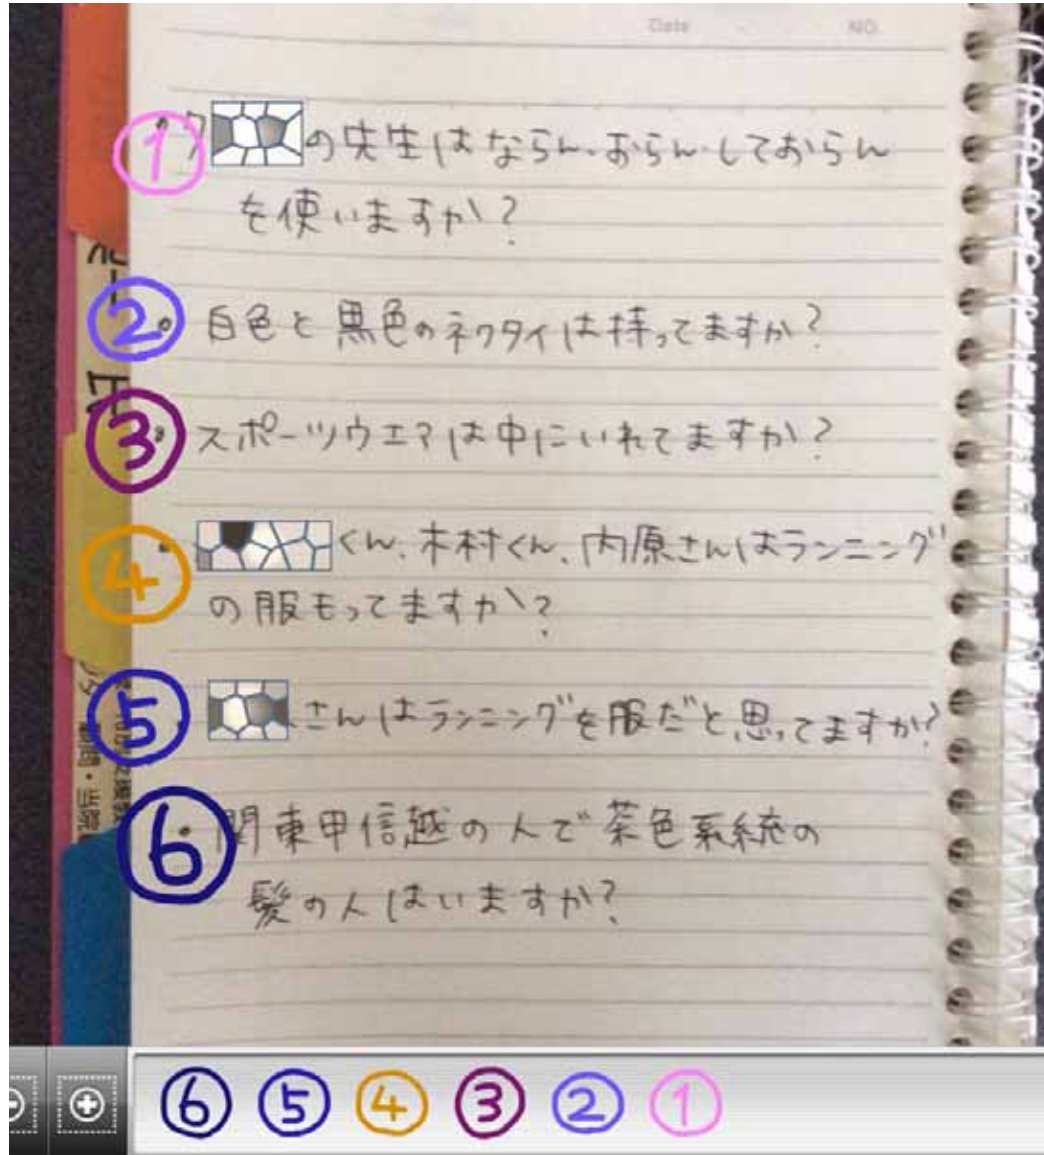 Date NO.
① ク の先生はならん、おらん、しておらん
を使いますか?
② 白色と黒色のネクタイは持ってますか?
③ スポーツウエアは中にいれてますか?
④ くん、木村くん、内原さんはランニング
の服もってますか?
⑤ さんはランニングを服だと思ってますか?
⑥ 関東甲信越の人で茶色系統の
髪の人はいますか?
⑥ ⑤ ④ ③ ② ①